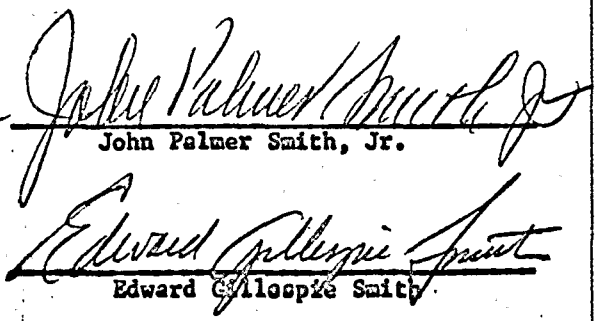 John Palmer Smith Jr
John Palmer Smith, Jr.
Edward Gillespie Smith
Edward Gillospie Smith